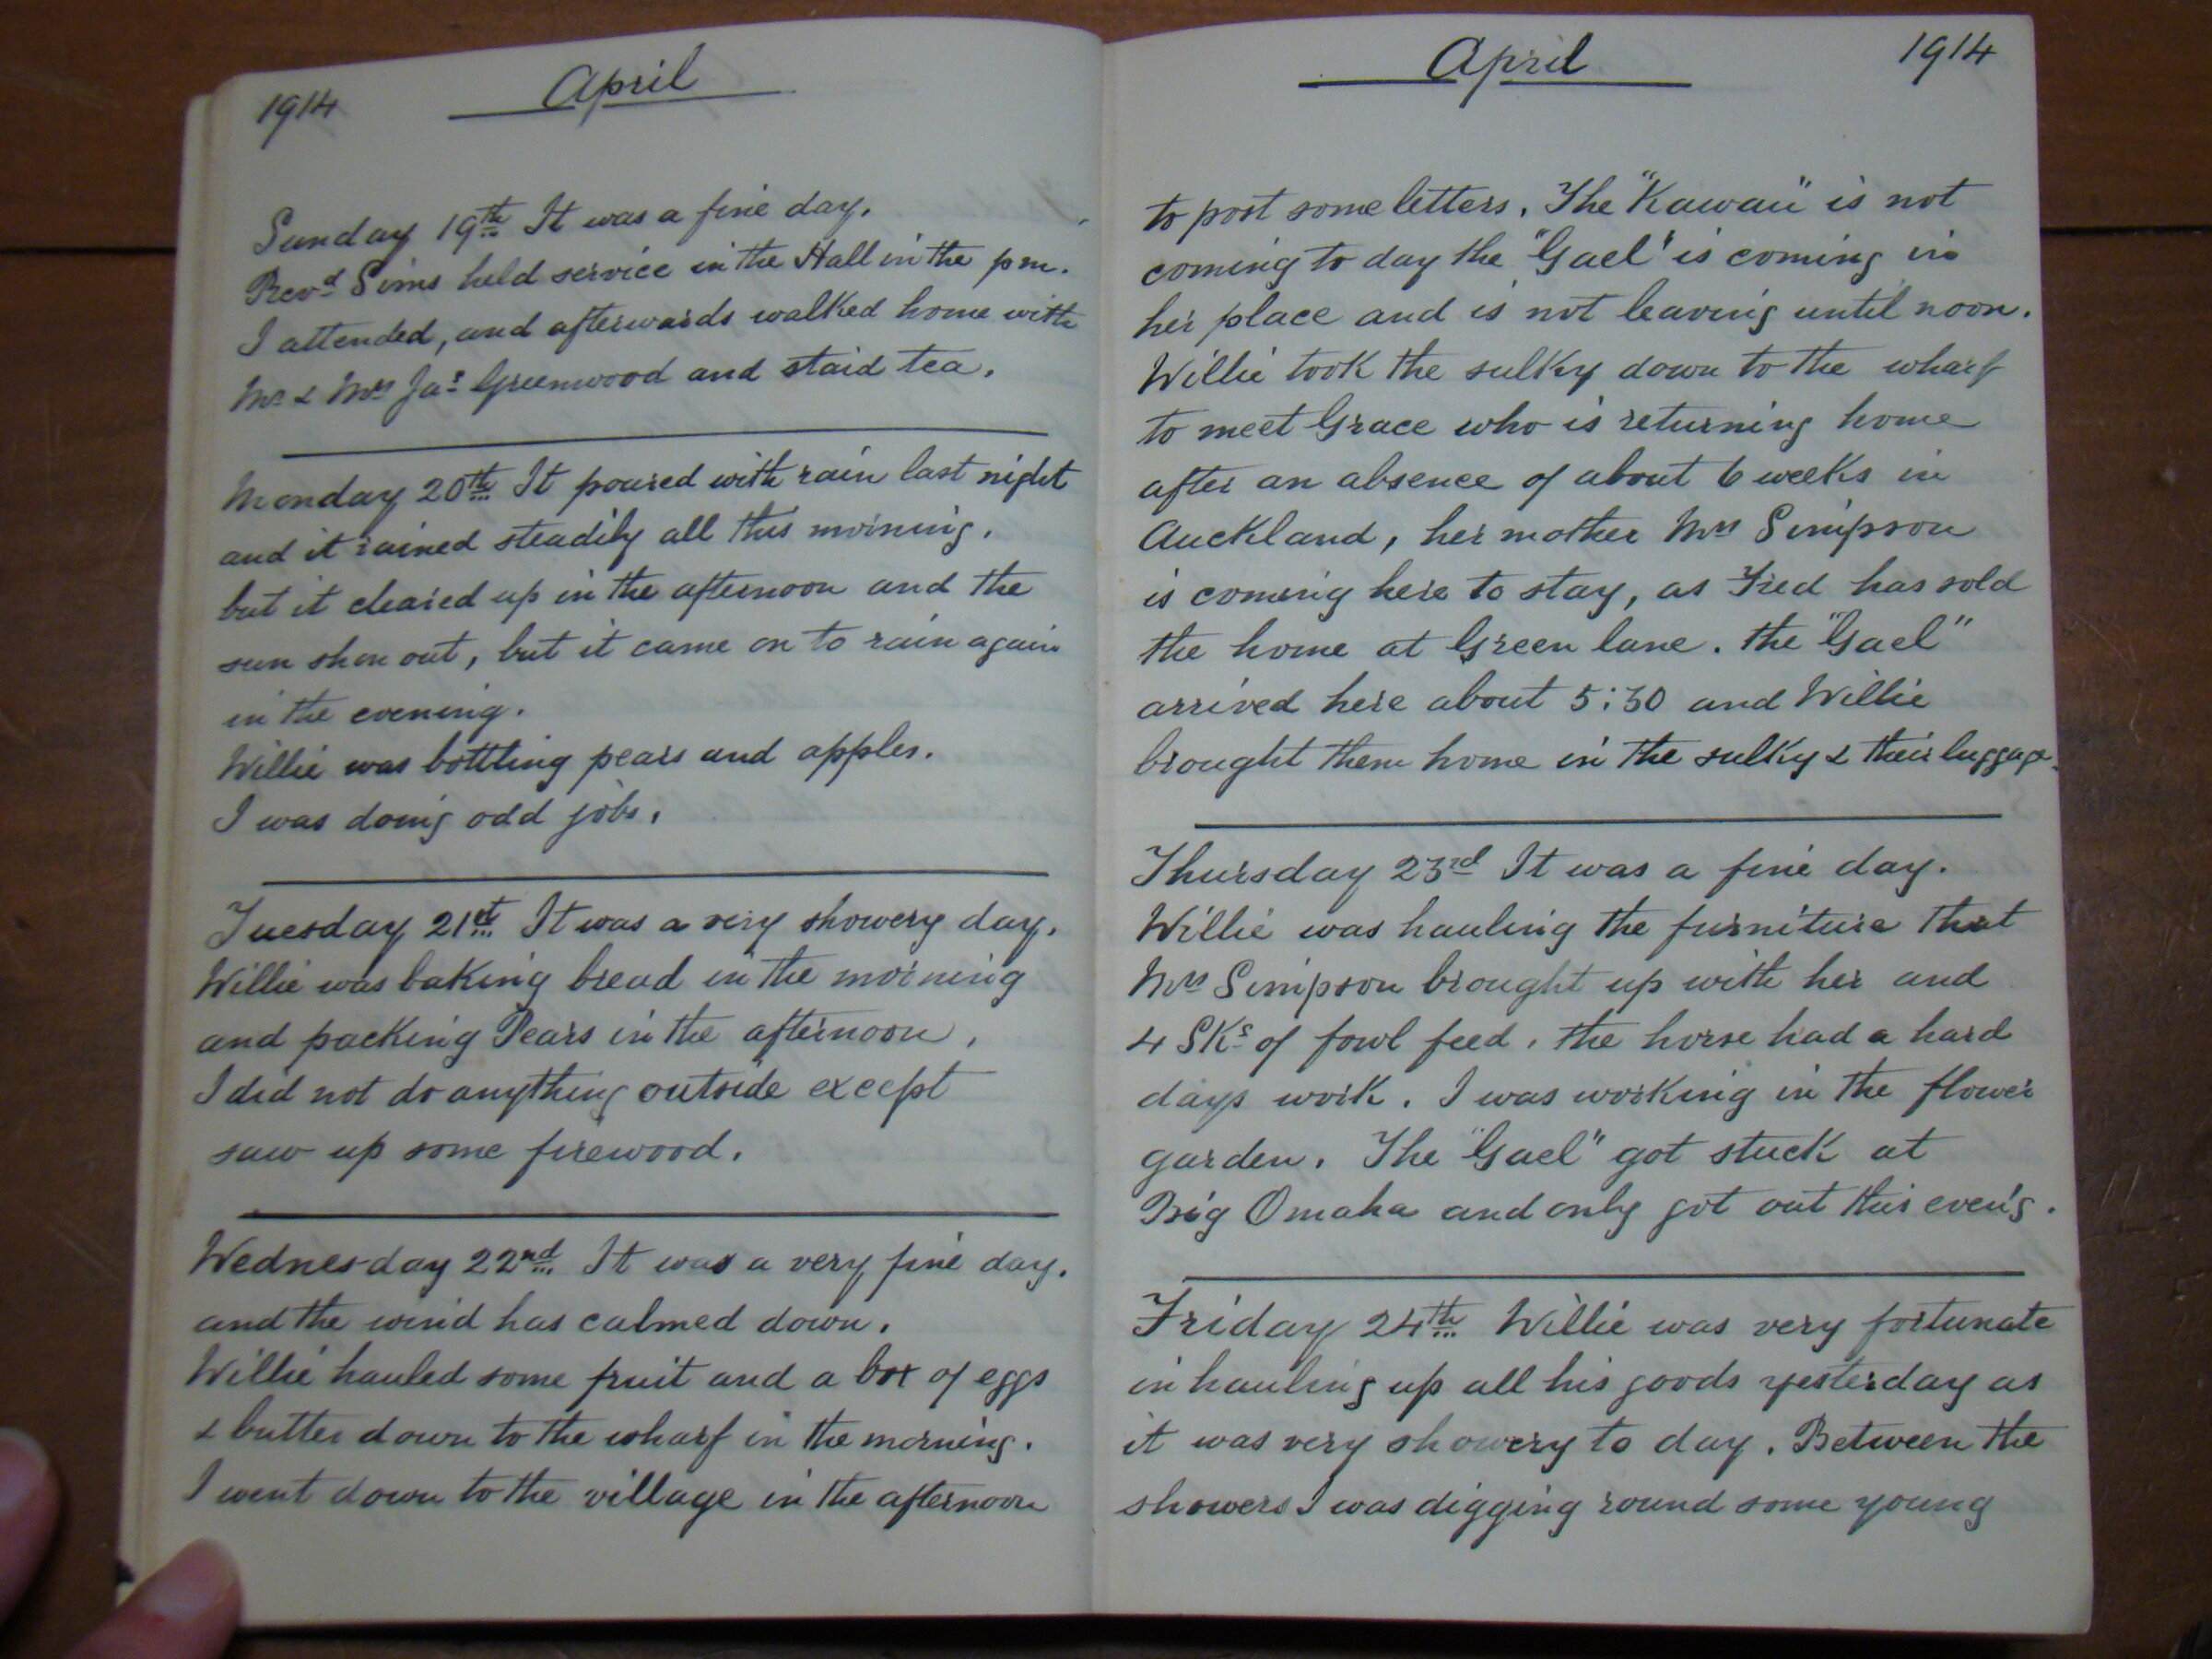 1914 April
Sunday 19th It was a fine day.
Revd Sims held service in the Hall in the pm.
I attended, and afterwards walked home with
Mr & Mrs Jas Greenwood and staid tea.
Monday 20th It poured with rain last night
and it rained steadily all this morning.
but it cleared up in the afternoon and the
sun shon out, but it came on to rain again
in the evening.
Willie was bottling pears and apples.
I was doing odd jobs.
Tuesday 21st It was a very showery day.
Willie was baking bread in the morning
and packing Pears in the afternoon.
I did not do anything outside except
saw up some firewood.
Wednesday 22nd It was a very fine day.
and the wind has calmed down.
Willie hauled some fruit and a box of eggs
& butter down to the wharf in the morning.
I went down to the village in the afternoon
April 1914
to post some letters. The "Kawau" is not
coming to day the "Gael" is coming in
her place and is not leaving until noon.
Willie took the sulky down to the wharf
to meet Grace who is returning home
after an absence of about 6 weeks in
Auckland, her mother Mrs Simpson
is coming here to stay, as Fred has sold
the home at Green lane. the "Gael"
arrived here about 5:30 and Willie
brought them home in the sulky & their luggage.
Thursday 23rd It was a fine day.
Willie was hauling the furniture that
Mrs Simpson brought up with her and
4 SKs of fowl feed. the horse had a hard
days work. I was working in the flower
garden. The "Gael" got stuck at
Big Omaha and only got out this even'g.
Friday 24th Willie was very fortunate
in hauling up all his goods yesterday as
it was very showery to day. Between the
showers I was digging round some young